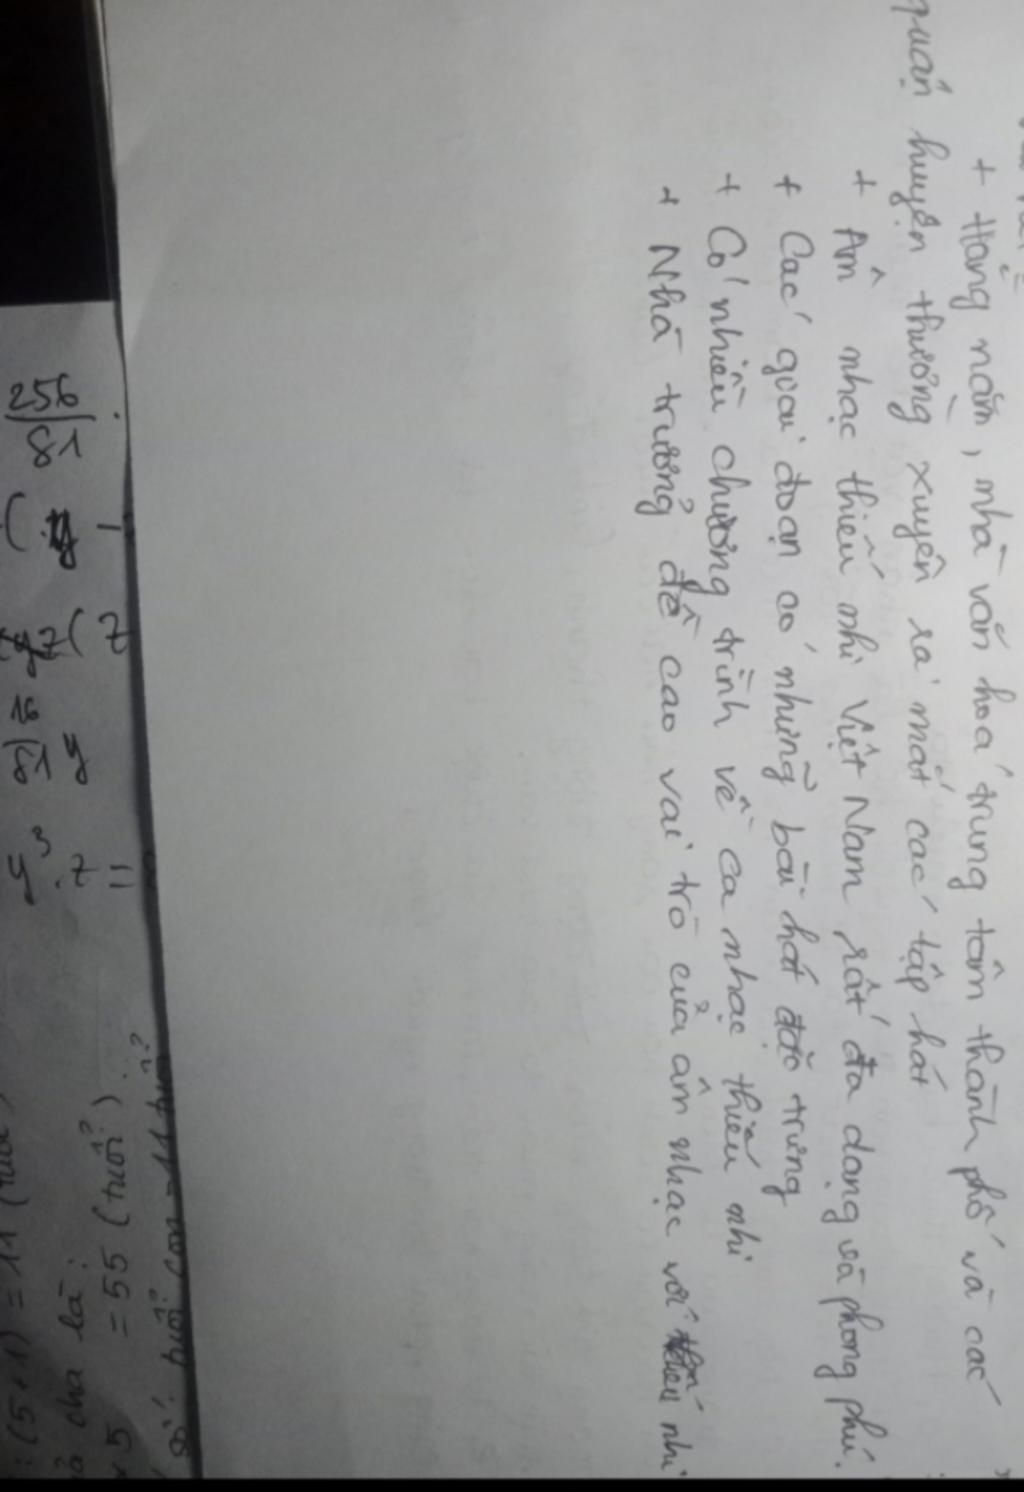 + Hàng năm, nhà văn hoá trung tâm thành phố và các
quận huyện thường xuyên ra mắt các tập hát
+ Âm nhạc thiếu nhi Việt Nam rất đa dạng và phong phú.
+ Các giai đoạn có những bài hát đặc trưng
+ Có nhiều chương trình về ca nhạc thiếu nhi
+ Nhà trưởng đề cao vai trò của âm nhạc với thiếu nhi
số: tuổi con = 11 tuổi
× 5 = 55 (tuổi)
cha là:
: (5+1) = 11
256/81
y³.z =
16/81 y